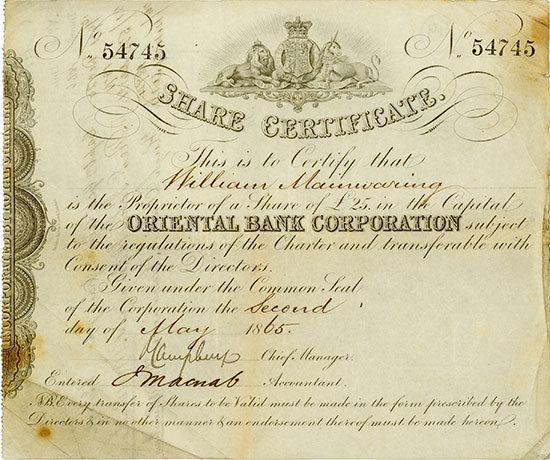 No. 54745 No. 54745
SHARE CERTIFICATE.
This is to Certify that
William Mainwaring
is the Proprietor of a Share of £25, in the Capital
of the ORIENTAL BANK CORPORATION subject
to the regulations of the Charter and transferable with
Consent of the Directors.
Given under the Common Seal
of the Corporation the Second
day of May 1865.
Campbell Chief Manager.
Entered J Macnab Accountant.
N.B. Every transfer of Shares to be Valid must be made in the form prescribed by the
Directors & in no other manner & an endorsement thereof must be made hereon.